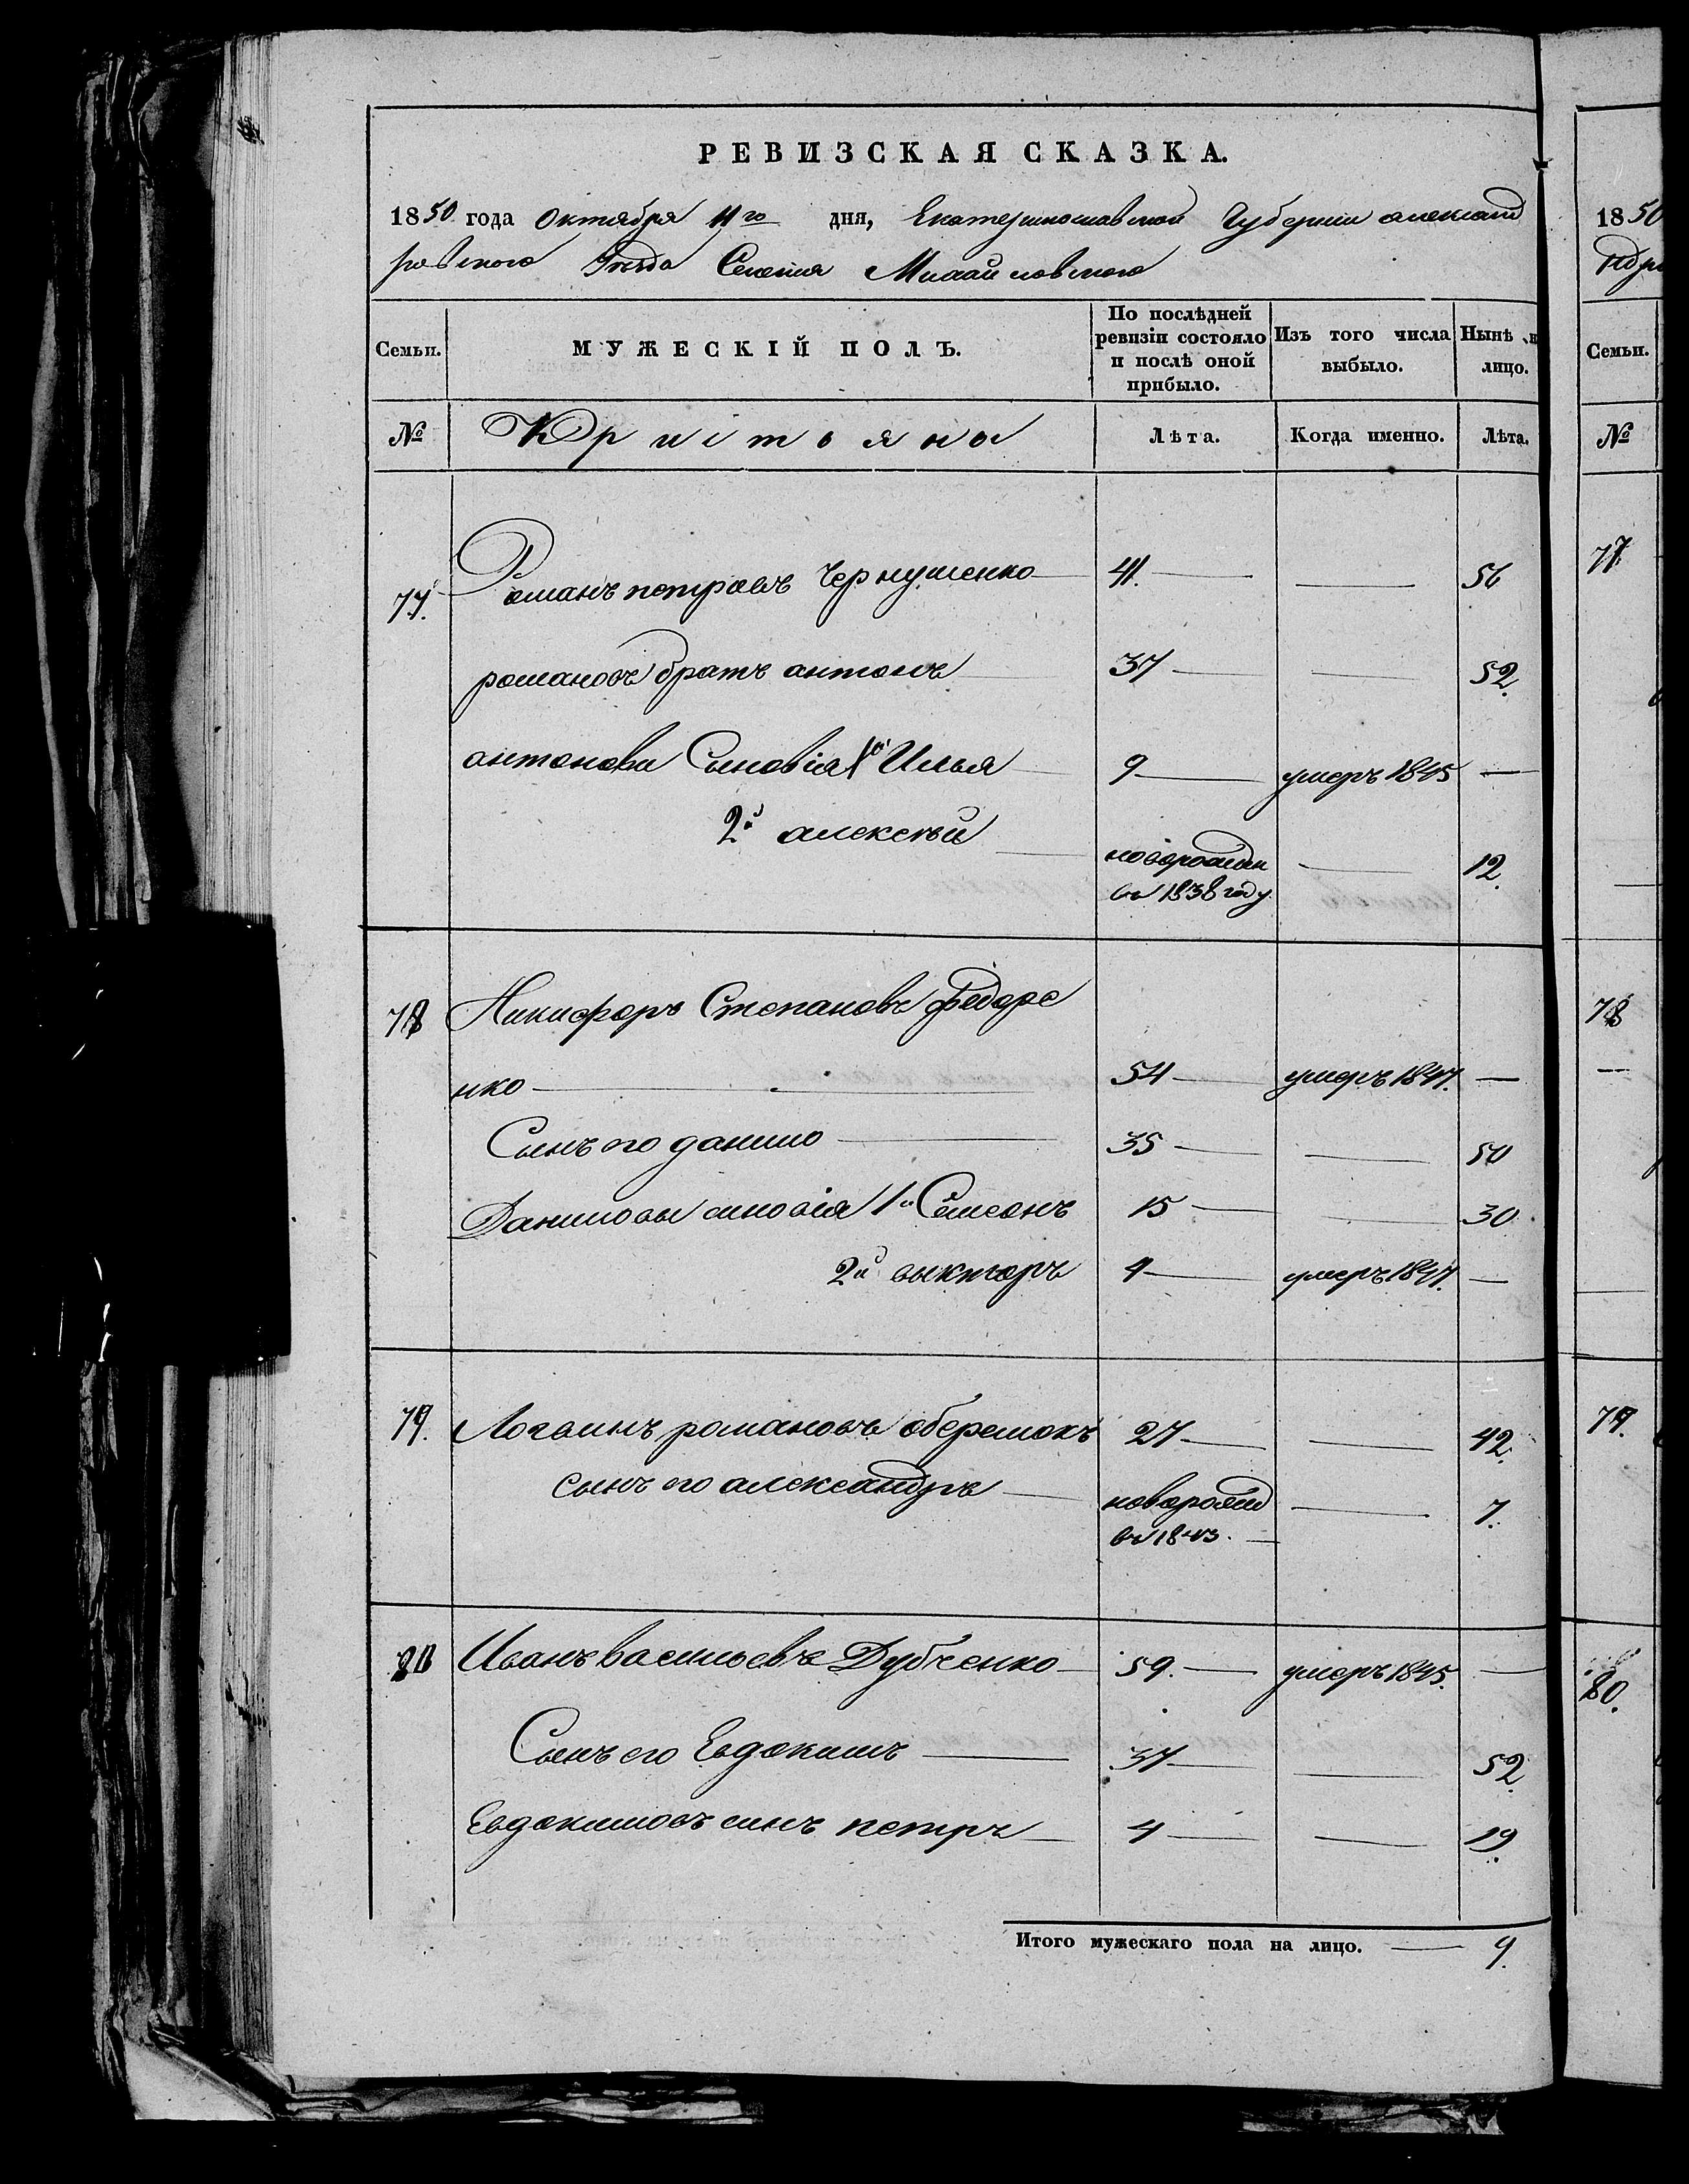 РЕВИЗСКАЯ СКАЗКА.
1850 года Октября 11го дня, Екатеринославской Губернии александ
ровского Уезда Селения Михайловского
Семьи.
МУЖЕСКІЙ ПОЛЪ.
По послѣдней ревизіи состояло и послѣ оной прибыло.
Изъ того числа выбыло.
Нынѣ н лицо.
№ Кристьяне Лѣта. Когда именно. Лѣта.
77. Романъ петровъ Чернушенко 41. — — 56
романовъ братъ антонъ 37 — — 52.
антонови Синовія 1й Илья 9 — умеръ 1845 —
2й алексѣй новорожден — 12.
въ 1838 году
78 Никифоръ Степановъ федоре
нко 54 — умеръ 1847. —
Синъ его данило 35 — — 50
Даниловы синовія 1й Семсонъ 15 — — 30
2й выкторъ 4 — умеръ 1847. —
79. Логвинъ романовъ оберемокъ 27 — — 42.
сынъ его александръ новорожд — 7.
въ 1843. —
80 Иванъ васильевъ Дубченко 59. — умеръ 1845. —
Синъ его Евдокимъ 37 — — 52.
Евдокимовъ синъ петръ 4 — — 19.
Итого мужескаго пола на лицо. — 9.
1850
Семьи.
№
77
78
79.
80.